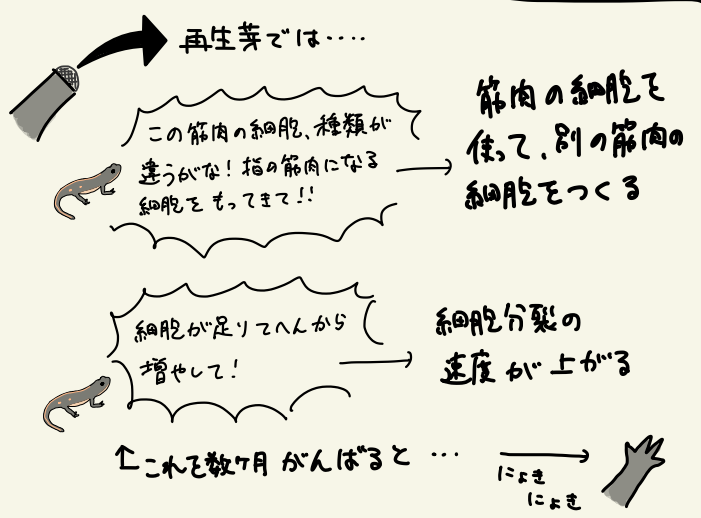 再生芽では‥‥
この筋肉の細胞、種類が
違うがな！指の筋肉になる
細胞をもってきて!!
筋肉の細胞を
使って、別の筋肉の
細胞をつくる
細胞が足りてへんから
増やして！
細胞分裂の
速度が上がる
↑これを数ヶ月がんばると…
にょき
にょき